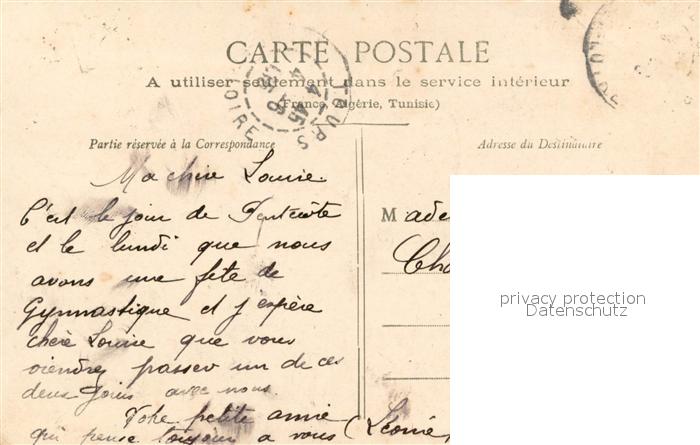 CARTE POSTALE
A utiliser seulement dans le service intérieur
(France, Algérie, Tunisie)
TOURS
LOIRE
Partie réservée à la Correspondance
Adresse du Destinataire
Ma chère Louise.
C'est le jour de Pentecôte
et le lundi que nous
avons une fête de
Gymnastique et j'espère
chère Louise que vous
viendrez passer un de ces
deux jours avec nous.
Votre petite amie
qui pense toujours a vous (Léonie
Made
Cha
privacy protection
Datenschutz